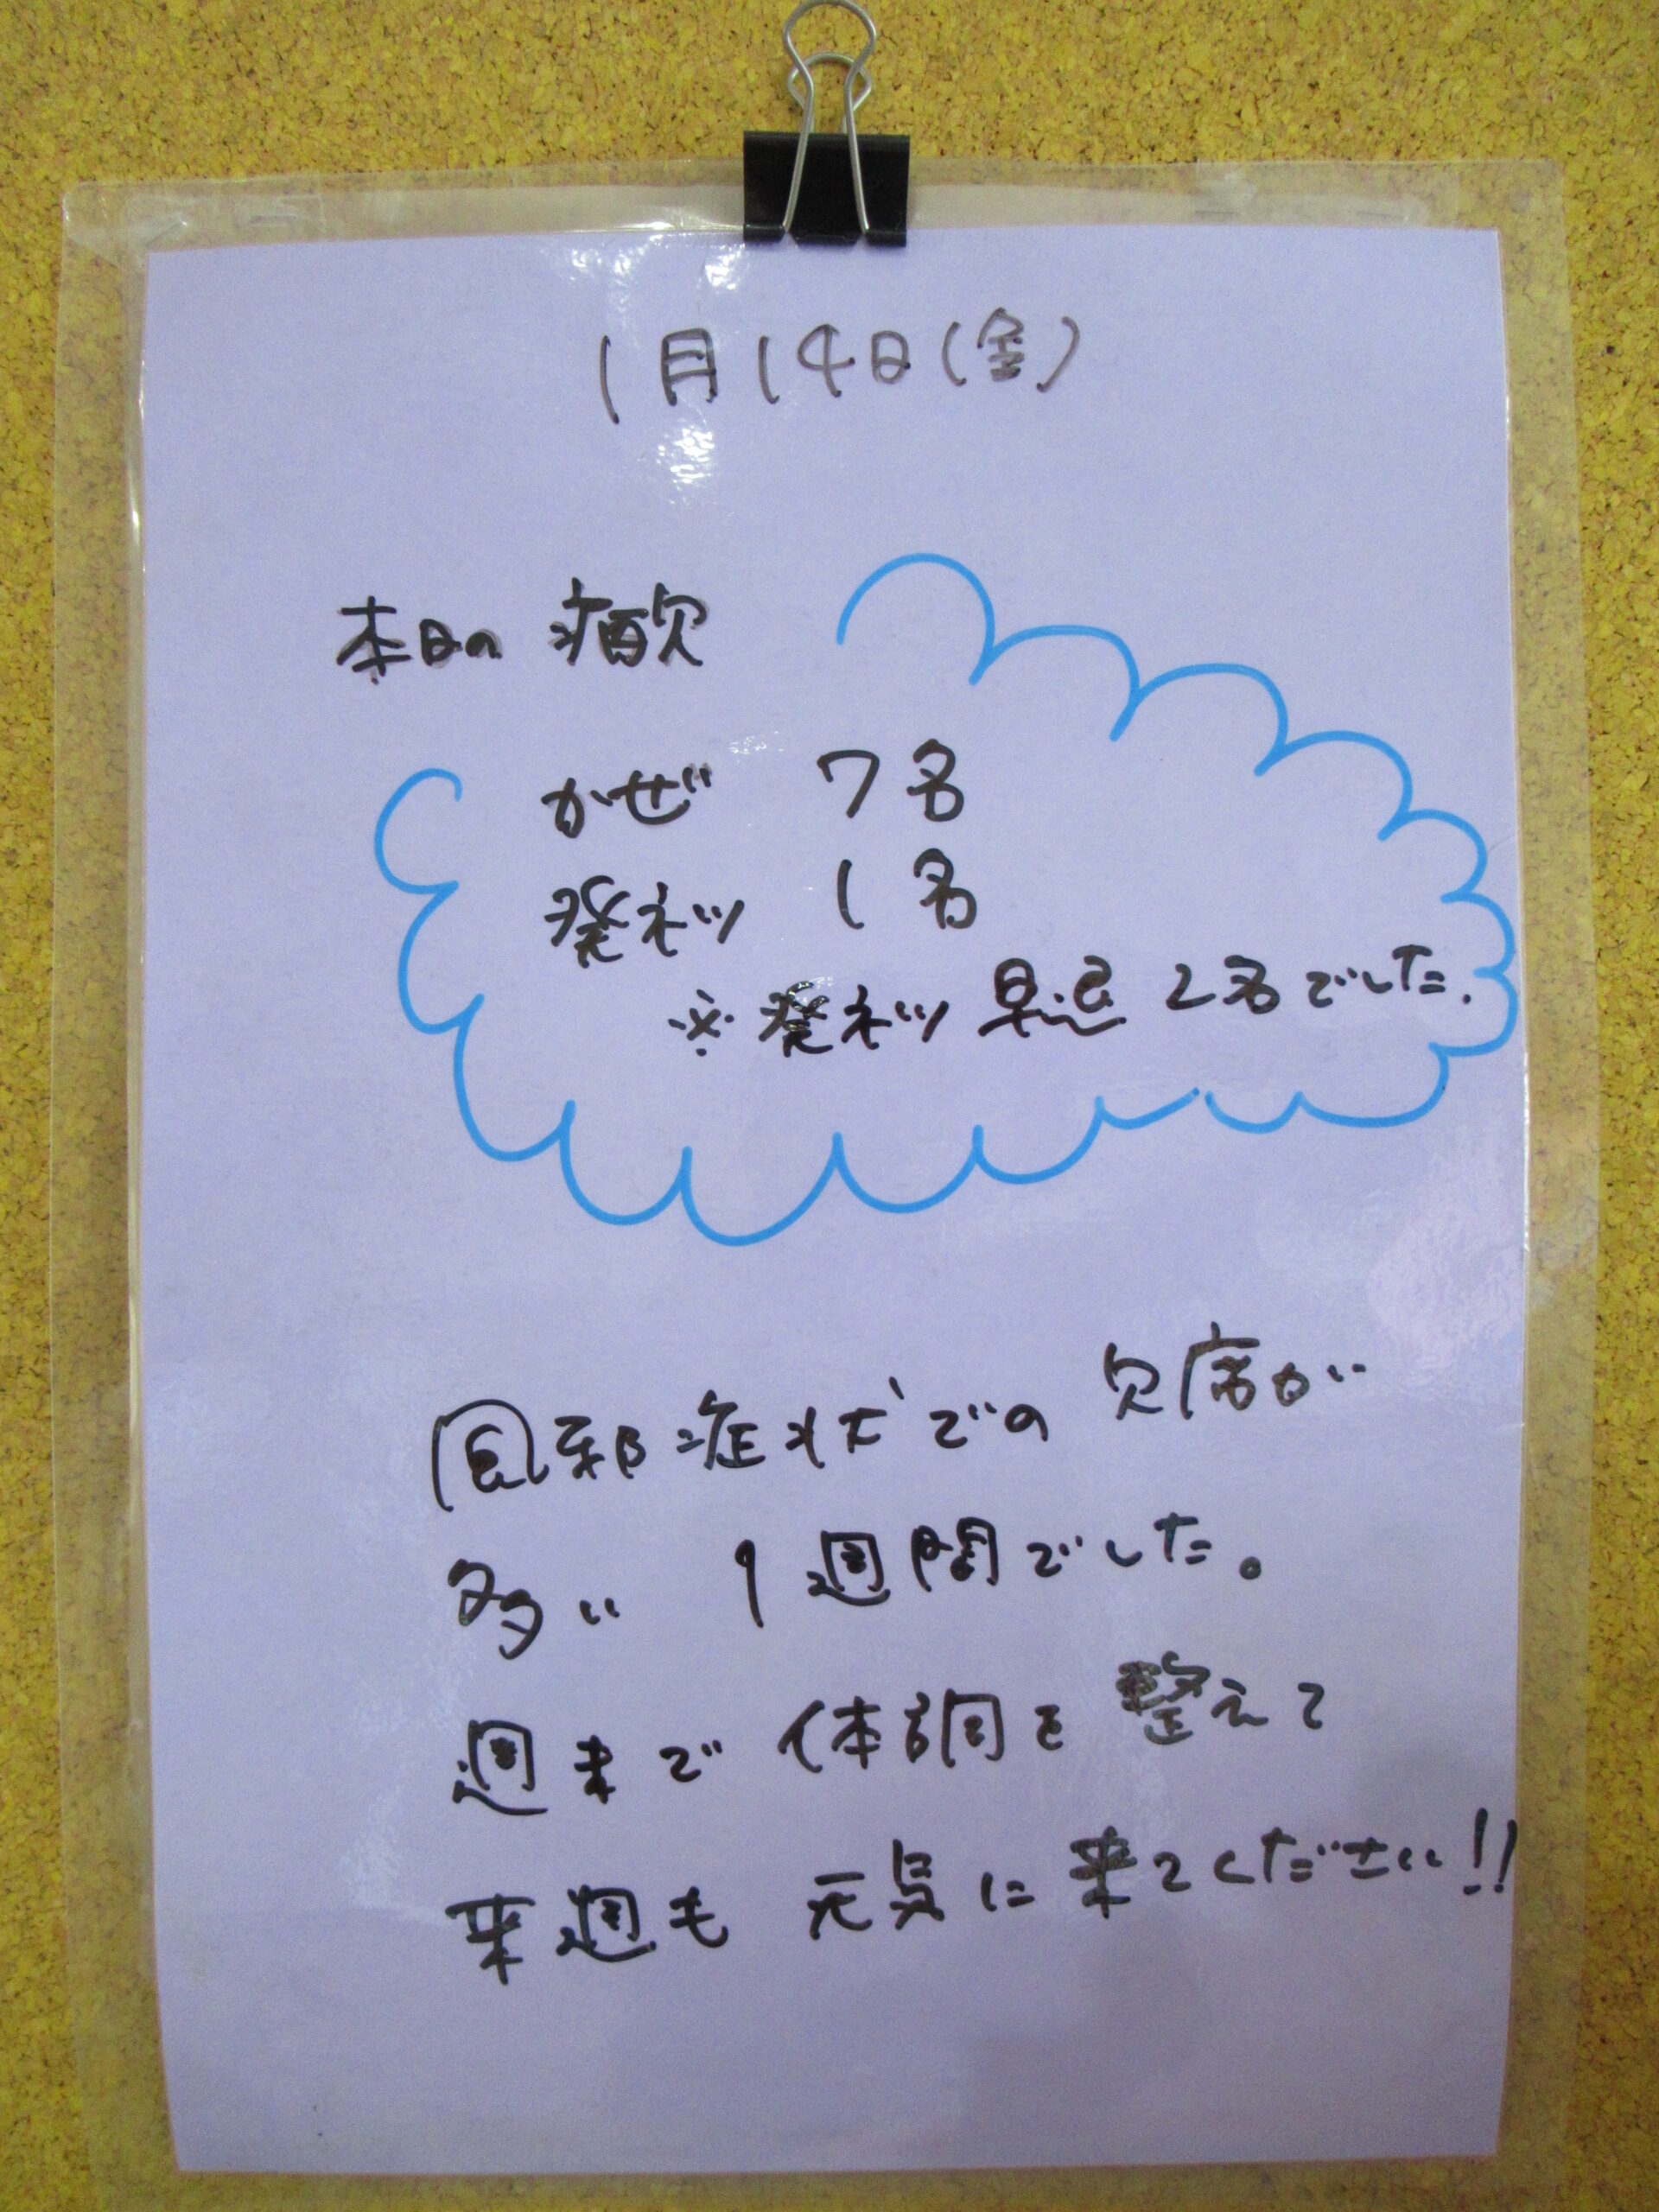 1月14日(金)
本日の 病欠
かぜ 7名
発ネツ 1名
※発ネツ 早退 2名でした.
風邪症状での 欠席が
多い 1週間でした。
週末で 体調を 整えて
来週も 元気に来てください!!